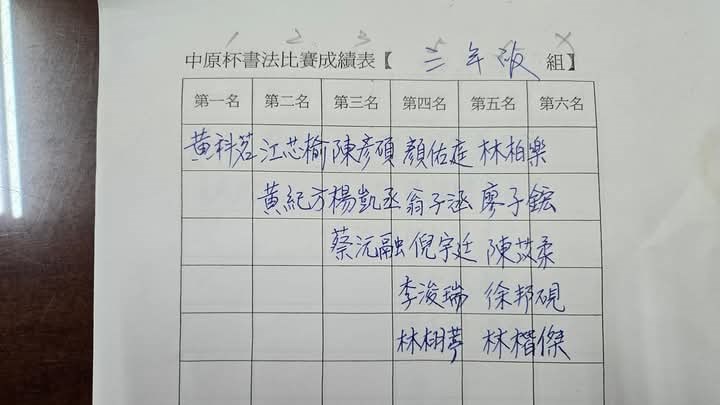 1 2 3 X
中原杯書法比賽成績表【 三年級 組】
第一名 第二名 第三名 第四名 第五名 第六名
黃科茗 江芯榆 陳彥碩 顏佑庭 林柏樂
黃紀方 楊凱丞 翁子涵 廖子鋐
蔡沅融 倪宇廷 陳苡柔
李浚瑞 徐邦硯
林栩葶 林楷傑